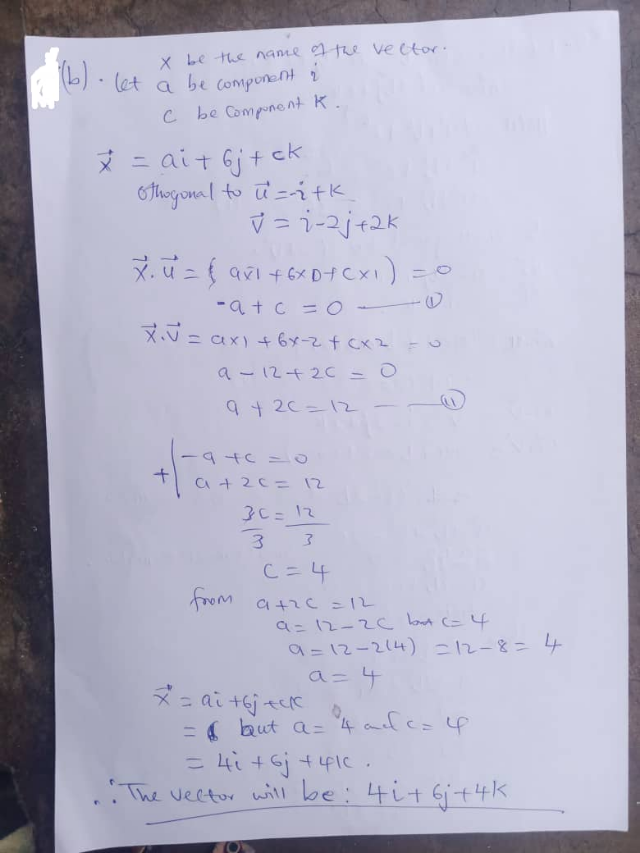 x be the name of the vector.
(b). let a be component i
c be component K.
x⃗ = ai + 6j + cK
Othogonal to u⃗ = -i + K
v⃗ = i - 2j + 2K
x⃗.u⃗ = { ax-1 + 6x0 + cx1 ) = 0
-a + c = 0 —— (i)
x⃗.v⃗ = ax1 + 6x-2 + cx2 = 0
a - 12 + 2c = 0
a + 2c = 12 —— (ii)
-a + c = 0
+ a + 2c = 12
3c = 12
3 3
c = 4
from a + 2c = 12
a = 12 - 2c but c = 4
a = 12 - 2(4) = 12 - 8 = 4
a = 4
x⃗ = ai + 6j + cK
= but a = 4 and c = 4
= 4i + 6j + 4K.
∴ The vector will be: 4i + 6j + 4K